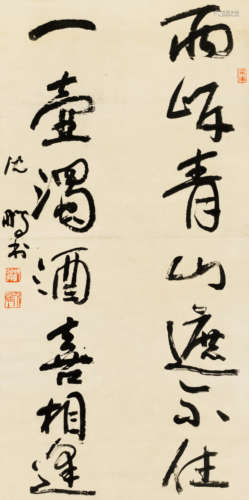 两岸青山遮不住
一壺濁酒喜相逢
沈鹏书